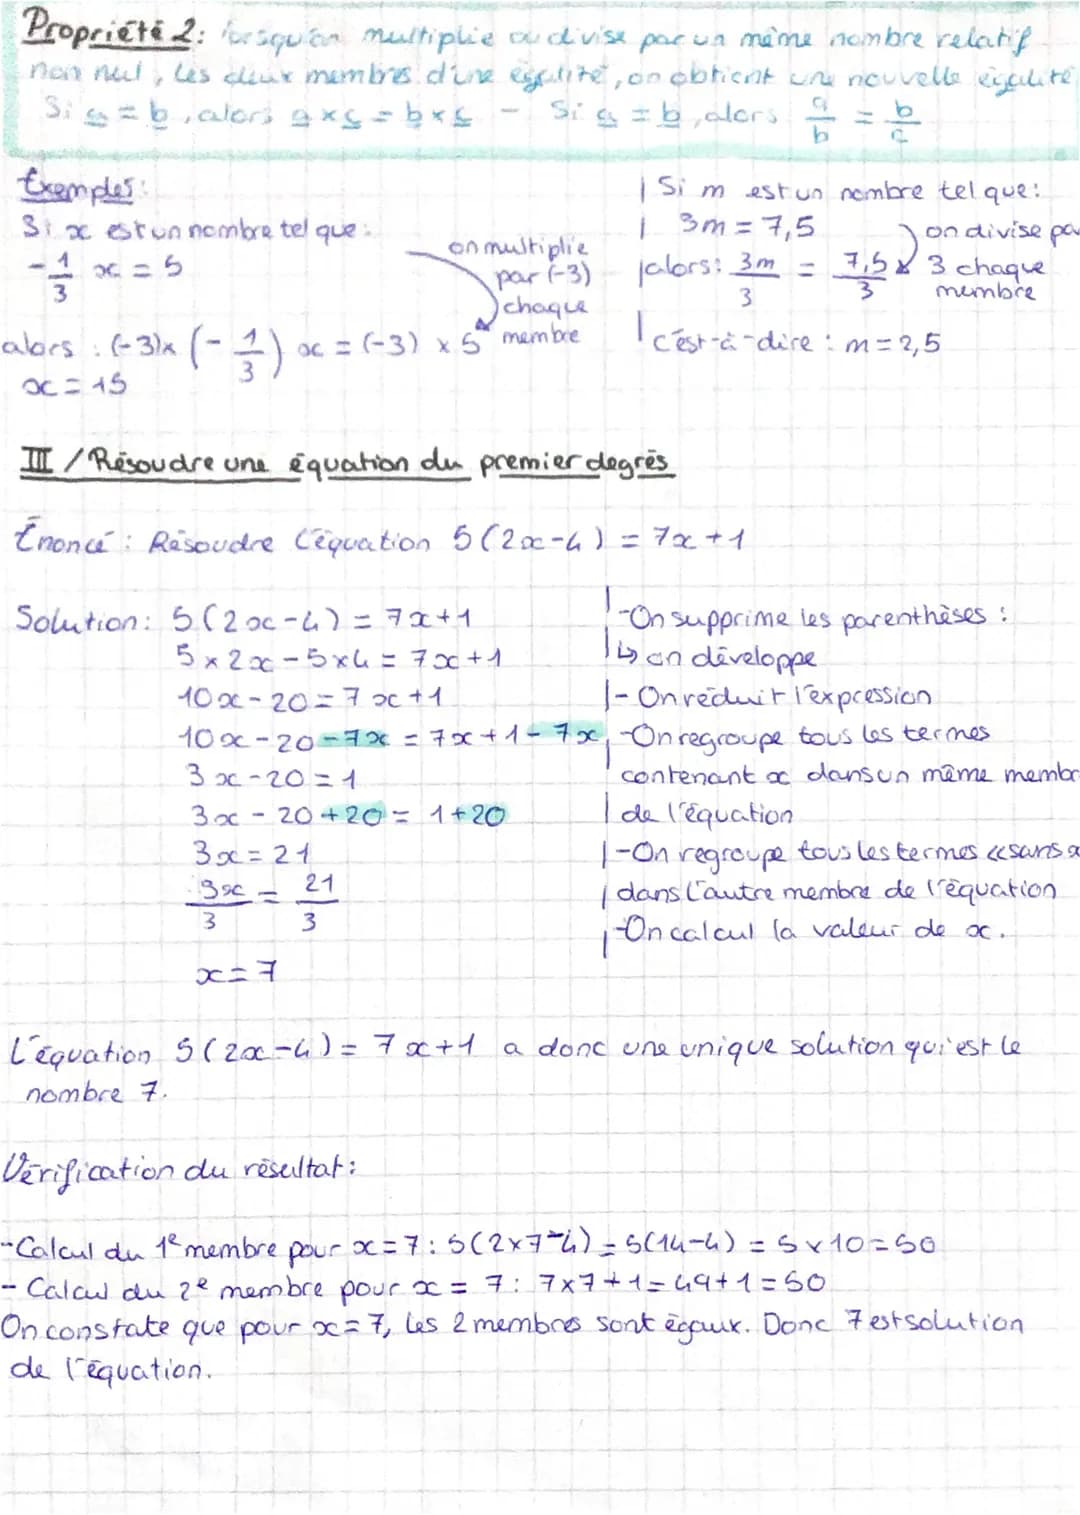 Propriété 2: lorsqu'on multiplie ou divise par un même nombre relatif
non nul, les deux membres d'une égalité, on obtient une nouvelle égalité
Si a = b, alors a×c = b×c - Si a = b, alors a/b = b/c
Exemples:
Si x est un nombre tel que:
-1/3 x = 5
on multiplie
par (-3)
chaque
membre
alors : (-3)× (-1/3) x = (-3) × 5
x = 15
Si m est un nombre tel que:
3m = 7,5
alors: 3m/3 = 7,5/3
on divise pa
3 chaque
membre
c'est-à-dire : m = 2,5
III / Résoudre une équation du premier degrés
Énoncé : Résoudre l'équation 5(2x-4) = 7x+1
Solution: 5(2x-4) = 7x+1
5×2x-5×4 = 7x+1
10x-20 = 7x+1
10x-20-7x = 7x+1-7x
3x-20 = 1
3x-20+20 = 1+20
3x = 21
3x/3 = 21/3
x = 7
-On supprime les parenthèses :
↳ on développe
- On réduit l'expression
-On regroupe tous les termes
contenant x dans un même membr
de l'équation
-On regroupe tous les termes «sans x
dans l'autre membre de l'équation
-On calcul la valeur de x.
L'équation 5(2x-4) = 7x+1 a donc une unique solution qui est le
nombre 7.
Vérification du résultat:
-Calcul du 1e membre pour x=7 : 5(2×7-4) = 5(14-4) = 5×10 = 50
- Calcul du 2e membre pour x = 7 : 7×7+1 = 49+1 = 50
On constate que pour x=7, les 2 membres sont égaux. Donc 7 est solution
de l'équation.